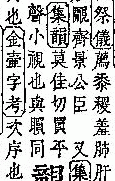 祭儀薦黍稷羞肺肝
齊景公臣 又集
集韻莫佳切買平
聲小視也與同
也金壺字考次序也